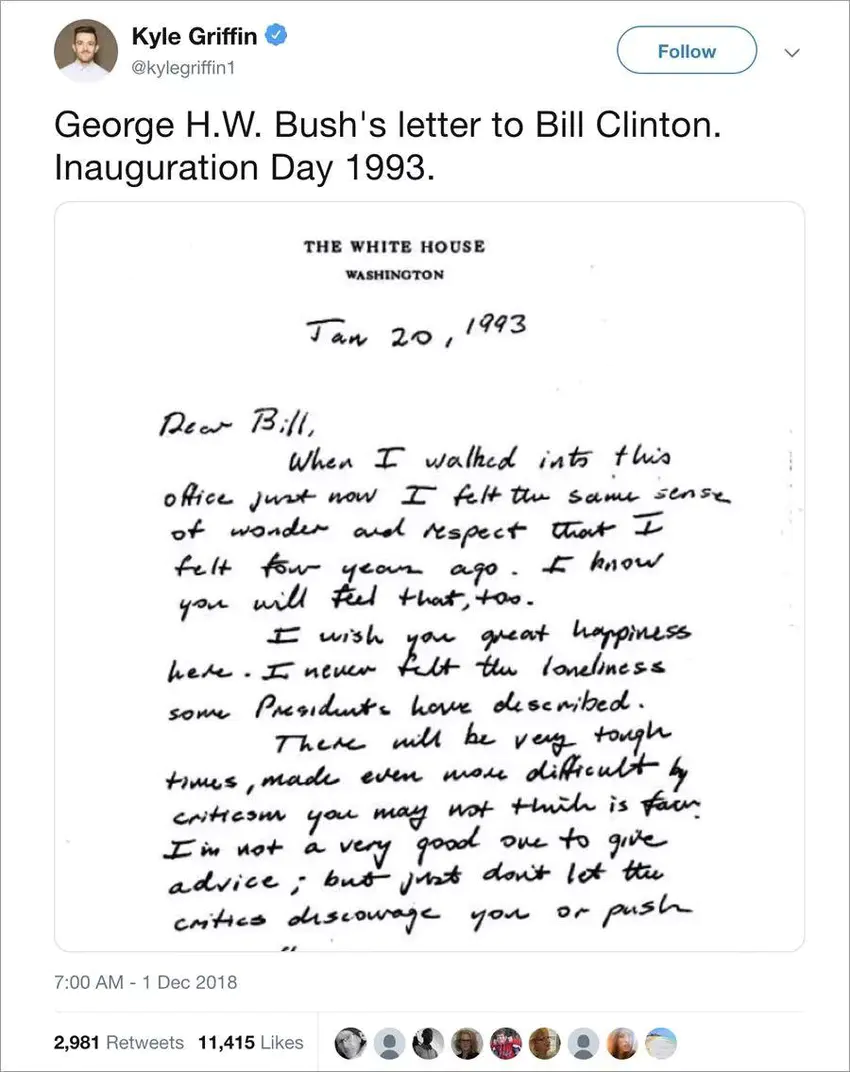 Kyle Griffin
@kylegriffin1
Follow
George H.W. Bush's letter to Bill Clinton.
Inauguration Day 1993.
THE WHITE HOUSE
WASHINGTON
Jan 20, 1993
Dear Bill,
When I walked into this
office just now I felt the same sense
of wonder and respect that I
felt four years ago. I know
you will feel that, too.
I wish you great happiness
here. I never felt the loneliness
some Presidents have described.
There will be very tough
times, made even more difficult by
criticism you may not think is fair.
I'm not a very good one to give
advice; but just don't let the
critics discourage you or push
7:00 AM - 1 Dec 2018
2,981 Retweets 11,415 Likes